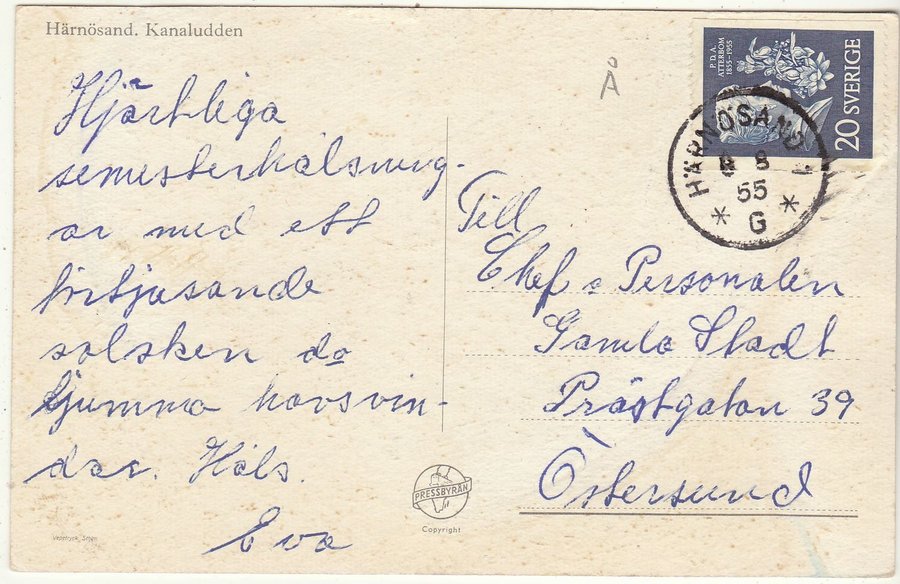 Härnösand. Kanaludden
Å
P.D.A. ATTERBOM
1855-1955
20 SVERIGE
HÄRNÖSAND 1
8 8
55
* G *
Hjärtliga
semesterhälsning-
ar med ett
förtjusande
solsken
ljumma havsvin-
dar. Häls.
Eva
Till
Chef o Personalen
Gamla Stadt
Prästgatan 39
Östersund
PRESSBYRÅN
Copyright